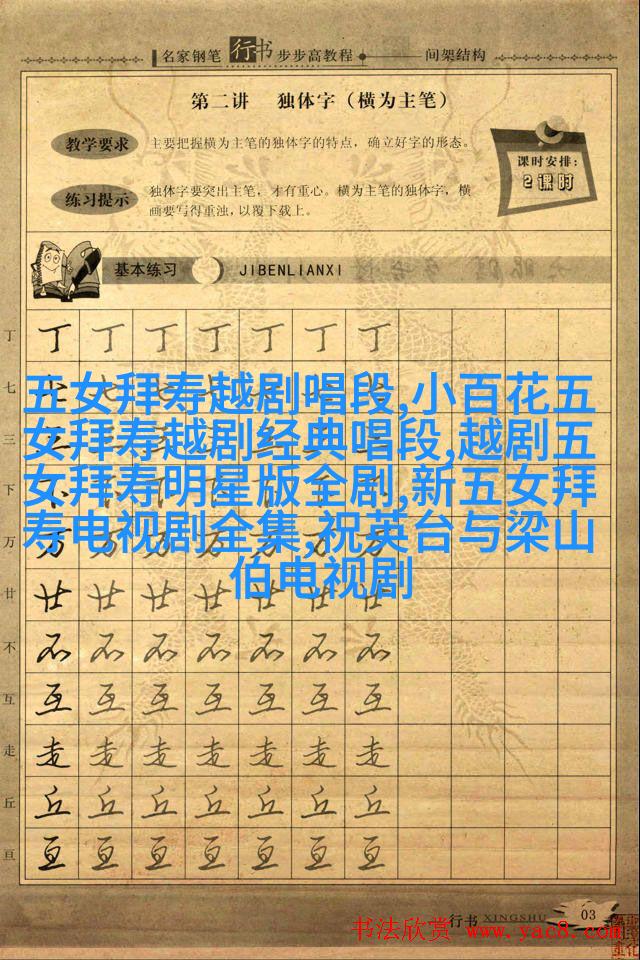 名家钢笔 行书 步步高教程 间架结构
第二讲 独体字（横为主笔）
教学要求 主要把握横为主笔的独体字的特点，确立好字的形态。
课时安排：
2课时
练习提示 独体字要突出主笔，才有重心。横为主笔的独体字，横
画要写得重浊，以覆下载上。
基本练习 JIBENLIANXI
丁 丁 丁 丁 丁 丁 丁 丁
七
五女拜寿越剧唱段,小百花五
三
女拜寿越剧经典唱段,越剧五
下
女拜寿明星版全剧,新五女拜
万 万 万 万 万 万 万 万
寿电视剧全集,祝英台与梁山
伯电视剧
廿 廿 廿 廿 廿 廿 廿 廿
不 不 不 不 不 不 不 不
互 互 互 互 互 互 互 互
走 走 走 走 走 走 走 走
丘 丘 丘 丘 丘 丘 丘 丘
亘 亘 亘 亘 亘 亘 亘 亘
行书 XINGSHU 03
书法欣赏 www.yac8.com